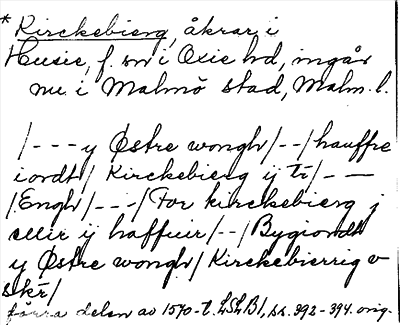 * Kirckebierg, åkrar i
Husie, f. sn i Oxie hd, ingår
nu i Malmö stad, Malm. l.
/--- y Østre wongh/--/hauffre
iordt/ Kirckebierg ij ti/---
/Engh/---/For kirckebierg j
ellir ij haffuir/--/Bygiordt
y Østre wongh/Kirckebierrig v
skr/
förra delen av 1570-t. LSLB 1, ss. 392-394. orig.